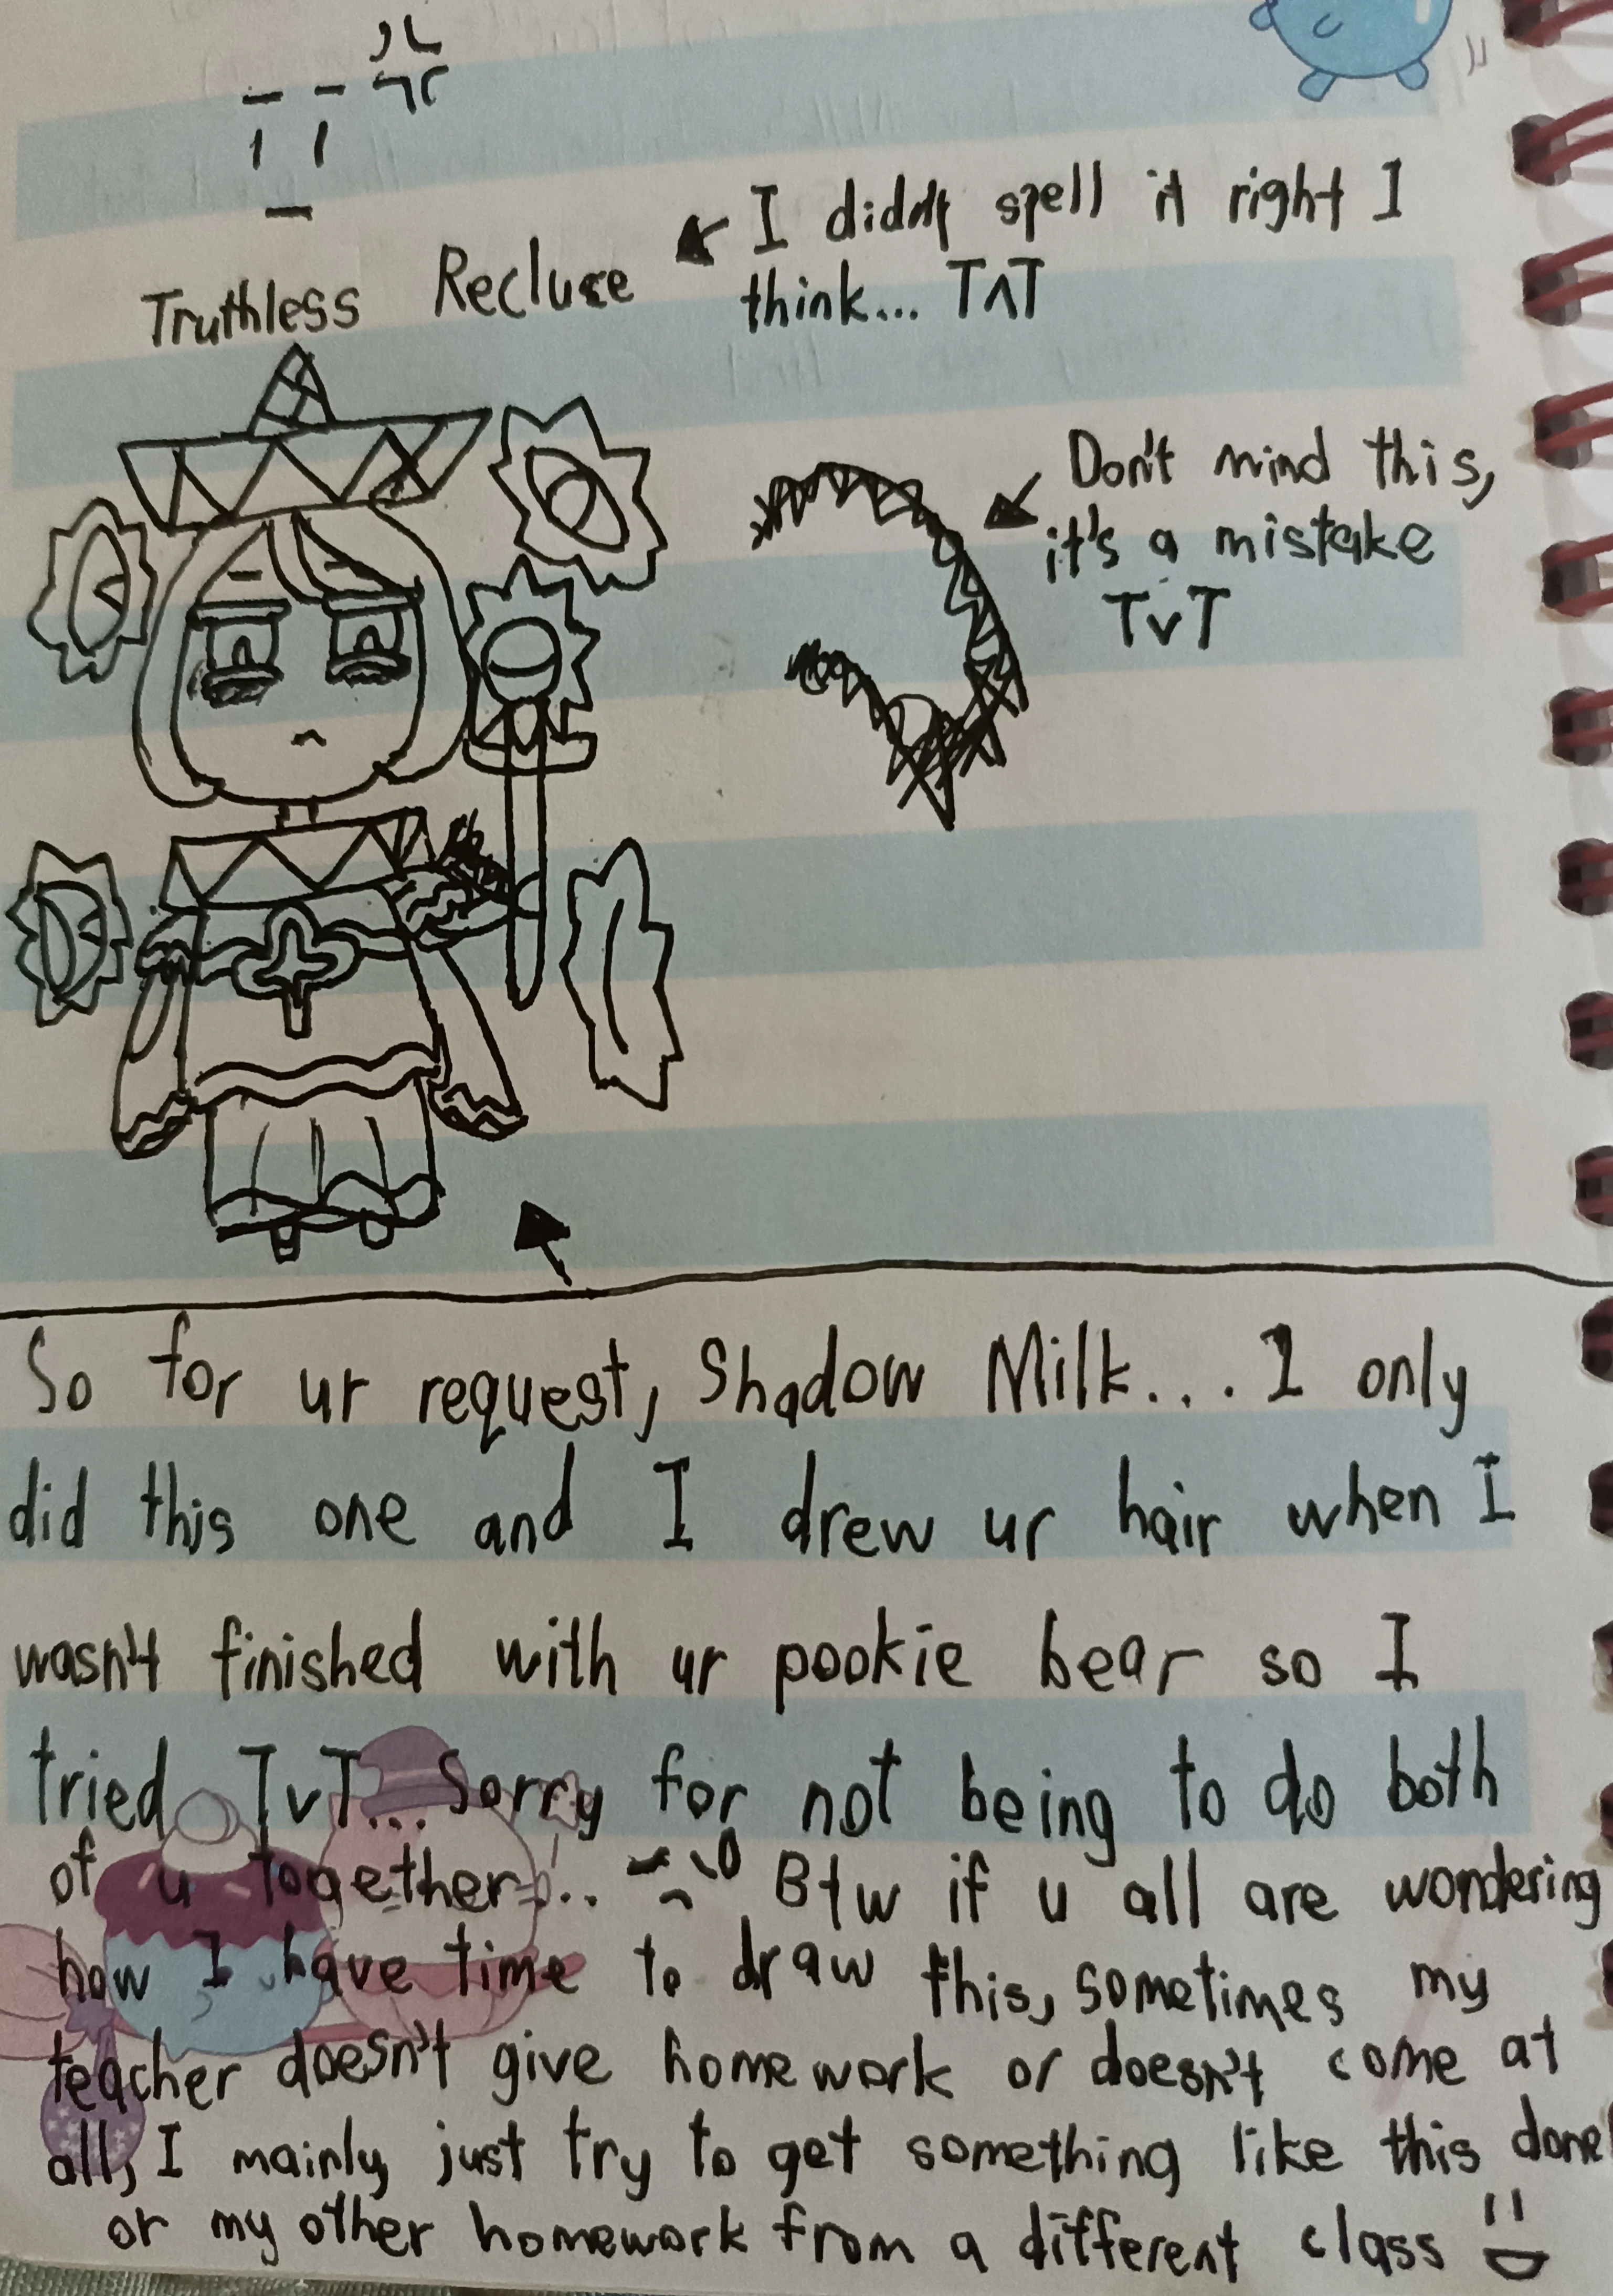 Truthless Recluse
I didn't spell it right I
think... T^T
Don't mind this,
it's a mistake
TvT
So for ur request, Shadow Milk... I only
did this one and I drew ur hair when I
wasn't finished with ur pookie bear so I
tried TvT... Sorry for not being to do both
of u together... Btw if u all are wondering
how I have time to draw this, sometimes my
teacher doesn't give homework or doesn't come at
all, I mainly just try to get something like this done
or my other homework from a different class